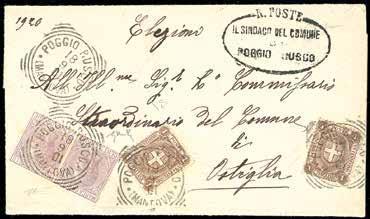 1920
Elezioni
R. POSTE
IL SINDACO DEL COMUNE
DI
POGGIO RUSCO
POGGIO RUSCO
All'Ill.me Sig.r Commissario
Straordinario del Comune
di
Ostiglia
POGGIO RUSCO
(MANTOVA)
POGGIO
(MANTOVA)